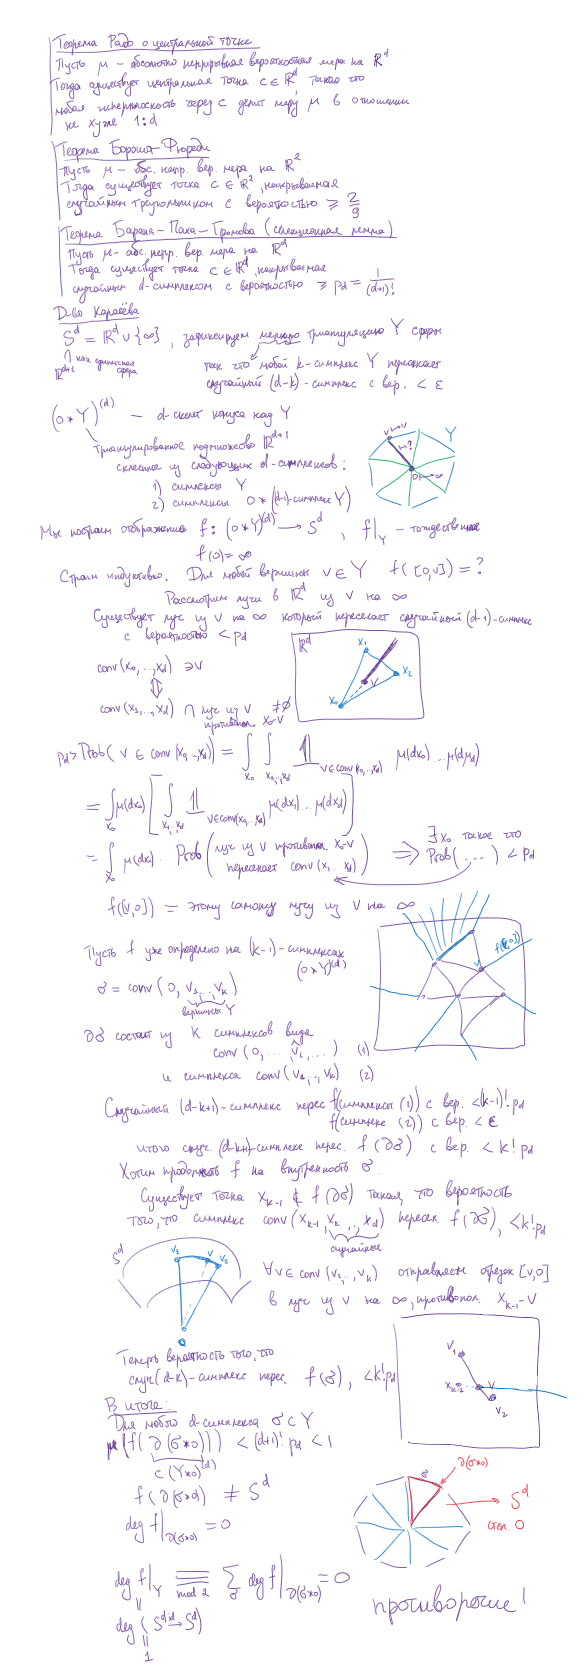 Теорема Радо о центральной точке
Пусть μ — абсолютно непрерывная вероятностная мера на ℝ^d
Тогда существует центральная точка c ∈ ℝ^d, такая что
любая гиперплоскость через c делит меру μ в отношении
не хуже 1:d
Теорема Бороша–Фюреди
Пусть μ — абс. непр. вер. мера на ℝ^2
Тогда существует точка c ∈ ℝ^2, накрываемая
случайным треугольником с вероятностью ≥ 2/9
Теорема Барань–Паха–Громова (селекционная лемма)
Пусть μ — абс. непр. вер. мера на ℝ^d
Тогда существует точка c ∈ ℝ^d, накрываемая
случайным d-симплексом с вероятностью ≥ p_d = 1/(d+1)!
Д-во Карасёва
S^d = ℝ^d ∪ {∞}, зафиксируем мелкую триангуляцию Y сферы
∩ как единичная сфера
ℝ^{d+1}
так что любой k-симплекс Y пересекает
случайный (d-k)-симплекс с вер. < ε
(0 * Y)^{(d)} — d-скелет конуса над Y
триангулированное подмножество ℝ^{d+1}
склеенное из следующих d-симплексов:
1) симплексы Y
2) симплексы 0 * (d-1)-симплекс Y)
v ↦ v
Y
↦ ?
0 ↦ ∞
Мы построим отображение f: (0 * Y)^{(d)} → S^d, f|_Y — тождественное
f(0) = ∞
Строим индуктивно. Для любой вершины v ∈ Y f([0,v]) = ?
Рассмотрим лучи в ℝ^d из v на ∞
Существует луч из v на ∞ который пересекает случайный (d-1)-симплекс
с вероятностью < p_d
ℝ^d
x_1
x_2
x_0
v
conv(x_0, …, x_d) ∋ v
⇕
conv(x_1, …, x_d) ∩ луч из v ≠ ∅
противопол. x_0-v
p_d > Prob(v ∈ conv(x_0, …, x_d)) = ∫_{x_0} ∫_{x_1,…,x_d} 𝟙_{v ∈ conv(x_0,…,x_d)} μ(dx_0) … μ(dx_d)
= ∫_{x_0} μ(dx_0) [ ∫_{x_1…x_d} 𝟙_{v ∈ conv(x_0,…,x_d)} μ(dx_1) … μ(dx_d) ]
= ∫_{x_0} μ(dx_0) · Prob(луч из v противопол. x_0-v пересекает conv(x_1…x_d)) ⟹ ∃ x_0 такое что Prob(…) < p_d
f([v,0]) = этому самому лучу из v на ∞
f([v,0])
v
Пусть f уже определено на (k-1)-симплексах
(0 * Y)^{(d)}
σ = conv(0, v_1, …, v_k)
вершины Y
∂σ состоит из k симплексов вида
conv(0, … v̂_i, …) (1)
и симплекса conv(v_1, …, v_k) (2)
Случайный (d-k+1)-симплекс перес. f(симплексы (1)) с вер. < (k-1)! p_d
f(симплекс (2)) с вер. < ε
итого случ. (d-k+1)-симплекс перес. f(∂σ) с вер. < k! p_d
Хотим продолжить f на внутренность σ.
Существует точка x_{k-1} ∉ f(∂σ) такая, что вероятность
того, что симплекс conv(x_{k-1}, x_k, …, x_d) пересек f(∂σ), < k! p_d
случайные
S^d
v_1
v
v_2
0
∀ v ∈ conv(v_1, …, v_k) отправляем отрезок [v,0]
в луч из v на ∞, противопол. x_{k-1}-v
Теперь вероятность того, что
случ (d-k)-симплекс перес. f(σ), < k! p_d
v_1
x_{k-1}
v
v_2
В итоге:
Для любого d-симплекса σ ⊂ Y
μ(f(∂(σ*0))) < (d+1)! p_d < 1
⊂ (Y*0)^{(d)}
f(∂(σ*0)) ≠ S^d
deg f|_{∂(σ*0)} = 0
σ
∂(σ*0)
S^d
степ. 0
deg f|_Y ≡_{mod 2} Σ_σ deg f|_{∂(σ*0)} = 0
deg (S^d →^{id} S^d)
1
противоречие!